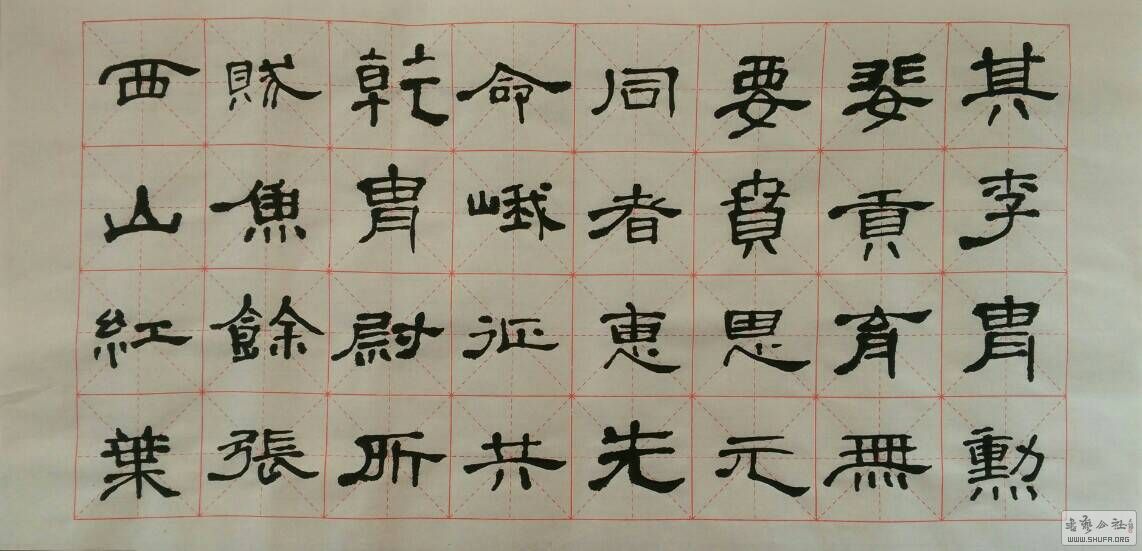 其李胄勲
婓貢育無
要賁思元
同者惠先
命峨征共
乾胄尉所
財魚餘張
西山紅葉
书艺公社
WWW.SHUFA.ORG